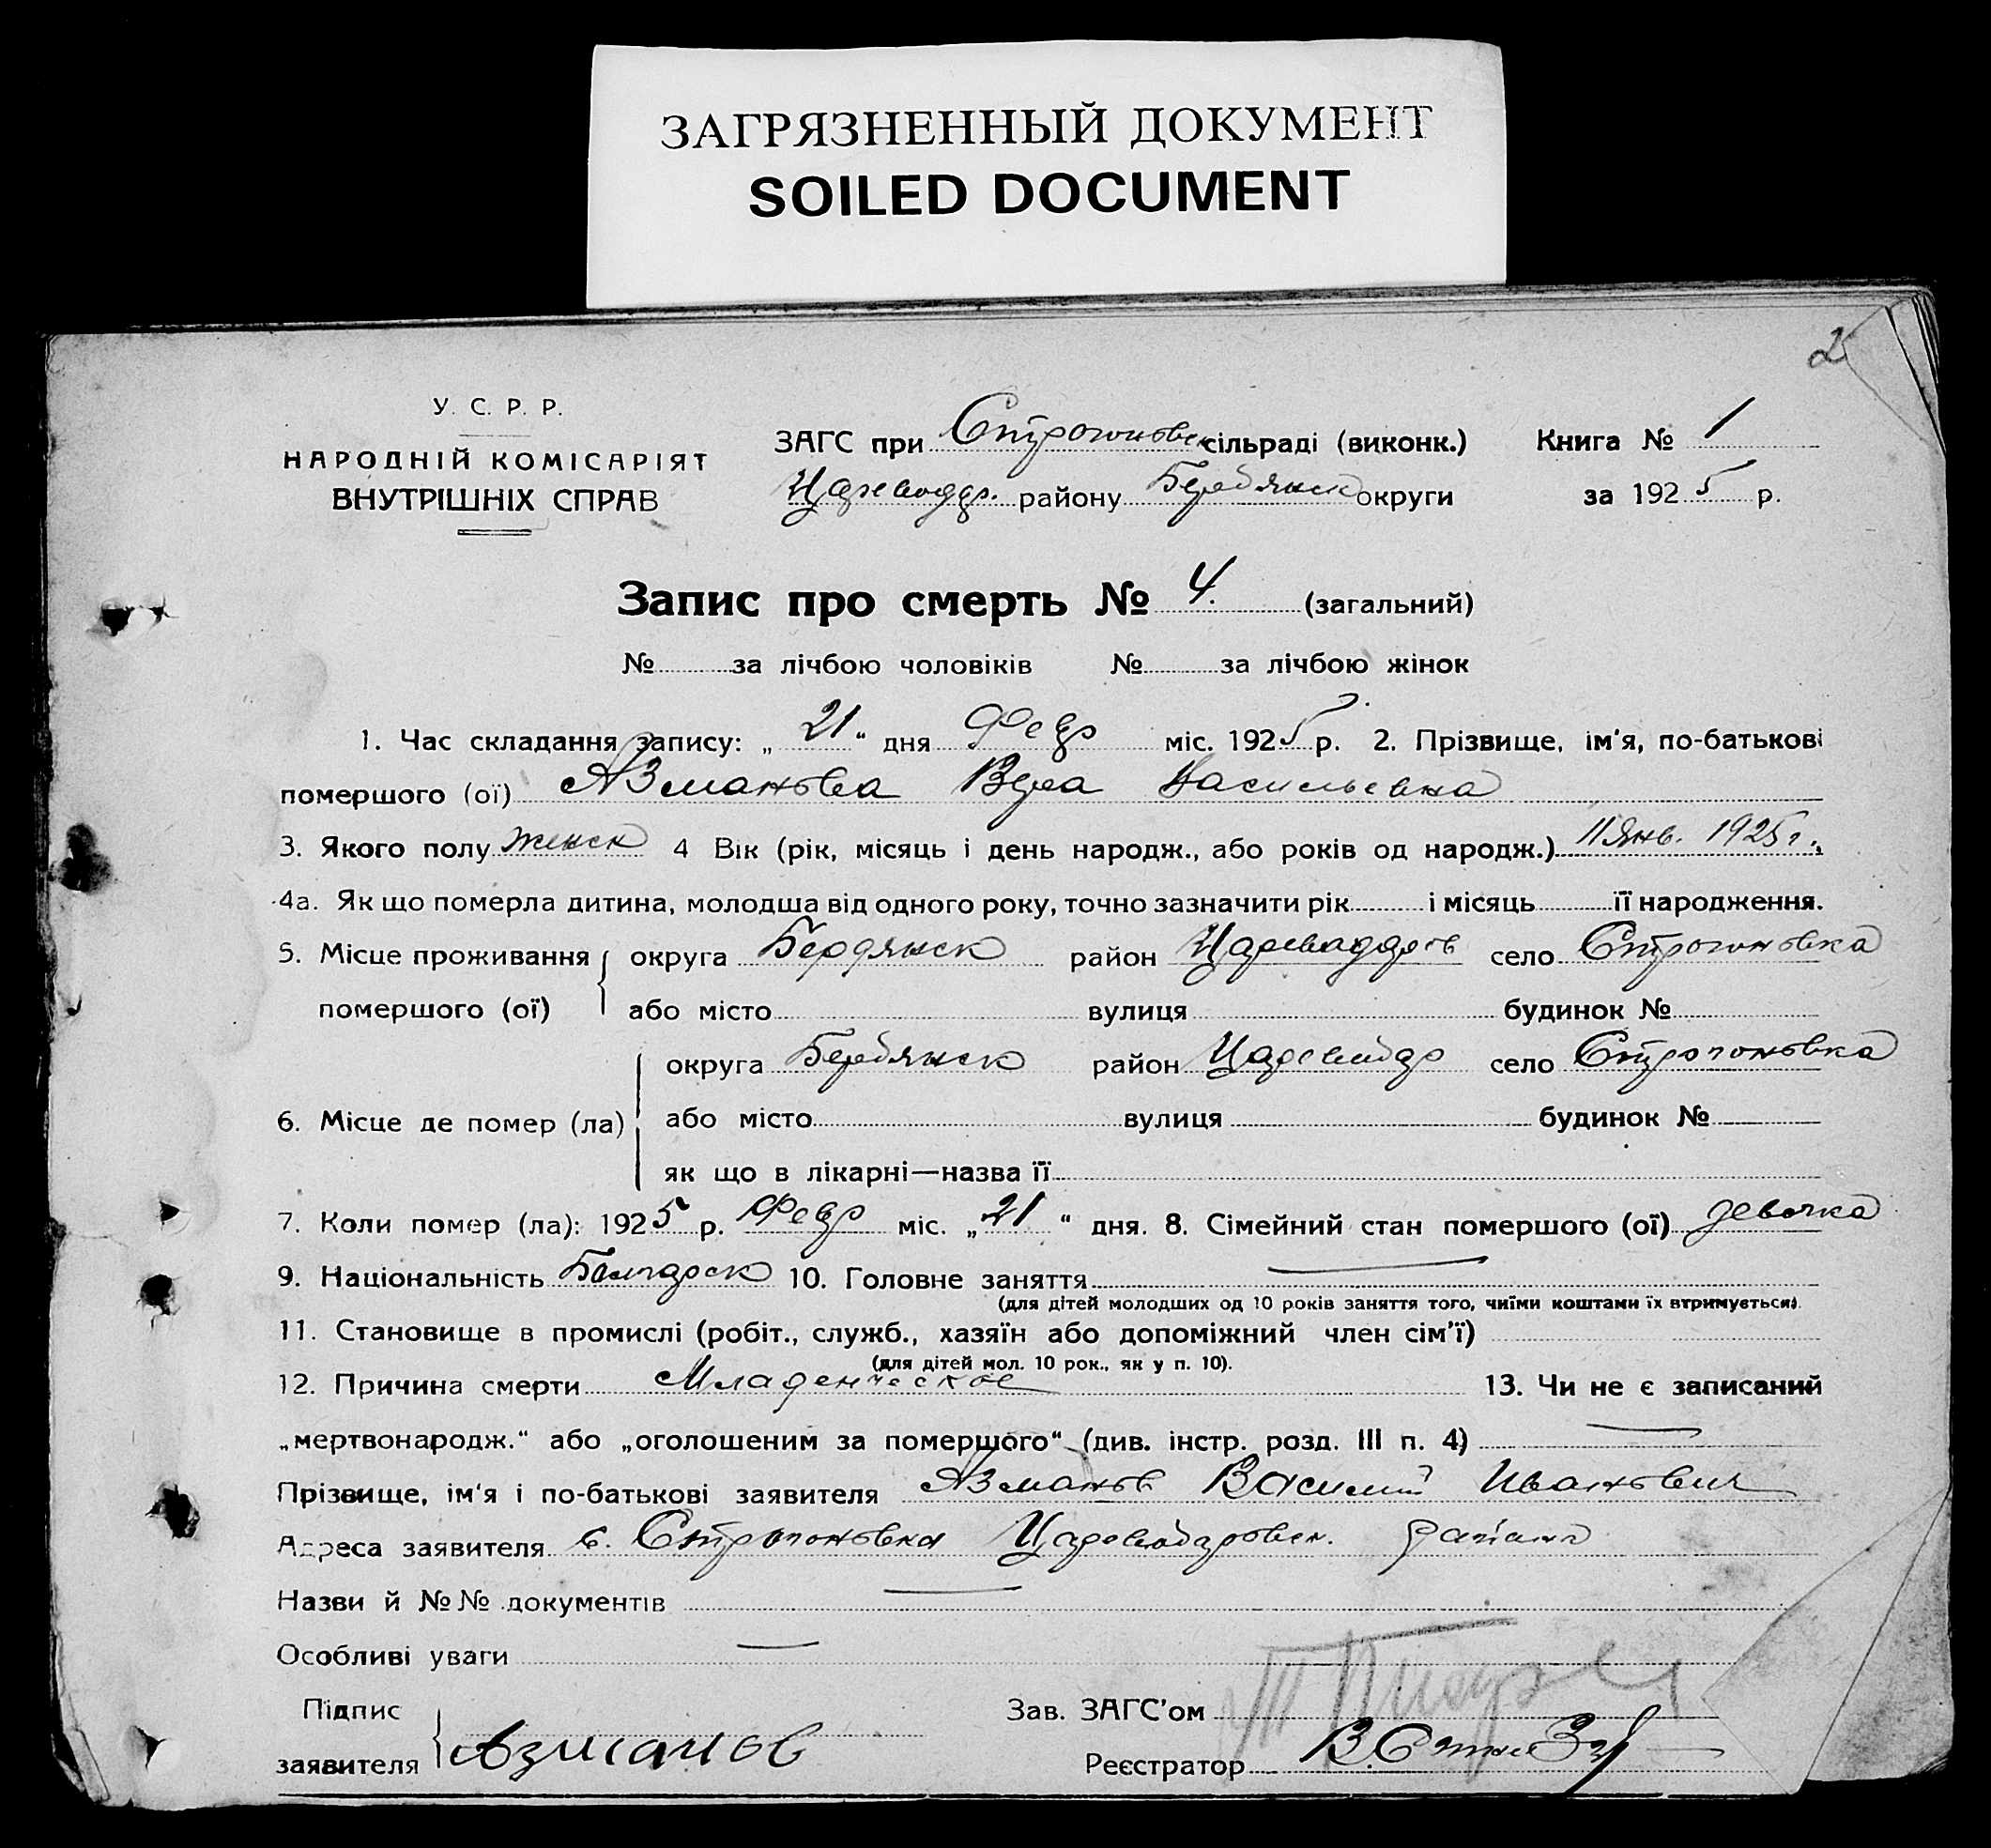 ЗАГРЯЗНЕННЫЙ ДОКУМЕНТ
SOILED DOCUMENT
2
У. С. Р. Р.
НАРОДНІЙ КОМІСАРІЯТ
ВНУТРІШНІХ СПРАВ
ЗАГС при Строгоновск сільраді (виконк.) Книга № 1
Цареводар. району Бердянск округи за 1925 р.
Запис про смерть № 4. (загальний)
№ за лічбою чоловіків № за лічбою жінок
1. Час складання запису: „21“ дня Февр міс. 1925 р. 2. Прізвище, ім'я, по-батькові
помершого (ої) Азманова Вера Васильевна
3. Якого полу женск 4 Вік (рік, місяць і день народж., або років од народж.) 11 Янв. 1925 г.
4а. Як що померла дитина, молодша від одного року, точно зазначити рік і місяць її народження.
5. Місце проживання помершого (ої) округа Бердянск район село Строгоновка
або місто вулиця будинок №
6. Місце де помер (ла) округа Бердянск район село Строгоновка
або місто вулиця будинок №
як що в лікарні—назва її
7. Коли помер (ла): 1925 р. Февр міс. „21“ дня. 8. Сімейний стан помершого (ої) девочка
9. Національність Болгарск 10. Головне заняття —
(для дітей молодших од 10 років заняття того, чиїми коштами їх втримується).
11. Становище в промислі (робіт., служб., хазяїн або допоміжний член сім'ї)
(для дітей мол. 10 рок., як у п. 10).
12. Причина смерти Младенческое 13. Чи не є записаний
„мертвонародж.“ або „оголошеним за помершого“ (див. інстр. розд. III п. 4) —
Прізвище, ім'я і по-батькові заявителя Азманов Василий Иванович
Адреса заявителя с. Строгоновка Цареводаровск. района
Назви й №№ документів —
Особливі уваги —
Підпис заявителя Азманов
Зав. ЗАГС'ом
Реєстратор